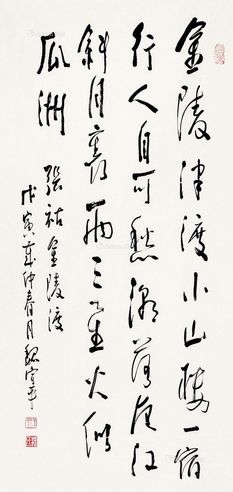 金陵津渡小山樓一宿
行人自可愁潮落夜江
斜月裏兩三星火似
瓜洲
張祜金陵渡
戊寅歲仲春月